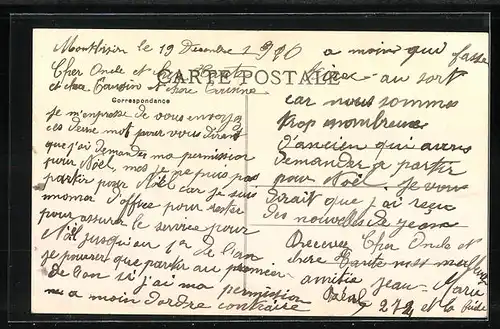 Montbrison le 19 Décembre 1910
Cher Oncle et
CARTE POSTALE
et chère Cousine
Correspondance
je m'enpresse de vous envoyez
ces deux mot pour vous dirent
que j'ai demander ma permission
pour Noël, mes je ne puis pas
partir pour Noël car je suis
nommer d'office pour rester
pour assurer le service pour
Noël jusqu'au 1er de l'an
je pense que partir au premier
de l'an si j'ai ma permission
a moin d'ordre contraire
a moin qui fasse
au sort
car nous somme
trop nombreuse
d'ancien qui avons
demander a partir
pour Noël. je vous
dirait que j'ai reçu
des nouvelles de
Recevez Cher Oncle et
chère Tante mes
amitié Jean-Marie
et la